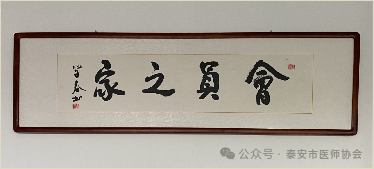 會員之家
公众号 · 泰安市医师协会